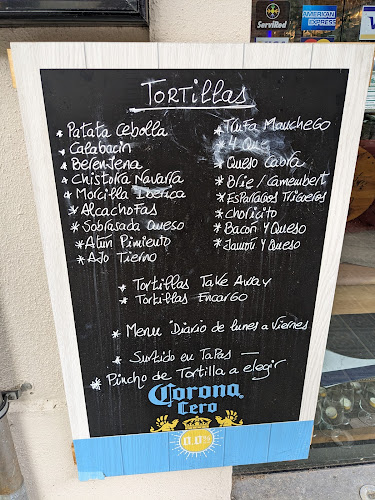 ServiRed
AMERICAN EXPRESS
VISA
TORTILLAS
* PATATA CEBOLLA
* CALABACIN
* BERENJENA
* CHISTORRA NAVARRA
* MORCILLA IBERICA
* ALCACHOFAS
* SOBRASADA QUESO
* ATUN PIMIENTO
* AJO TIERNO
* TRUFA MANCHEGO
* 4 QUE
* QUESO CABRA
* BRIE / CAMEMBERT
* ESPARRAGOS TRIGUEROS
* CHORICITO
* BACON Y QUESO
* JAMON Y QUESO
* TORTILLAS TAKE AWAY
* TORTILLAS ENCARGO
* MENU DIARIO de lunes a Viernes
* SURTIDO EN TAPAS
* PINCHO DE TORTILLA a elegir
Corona
Cero
0,0%